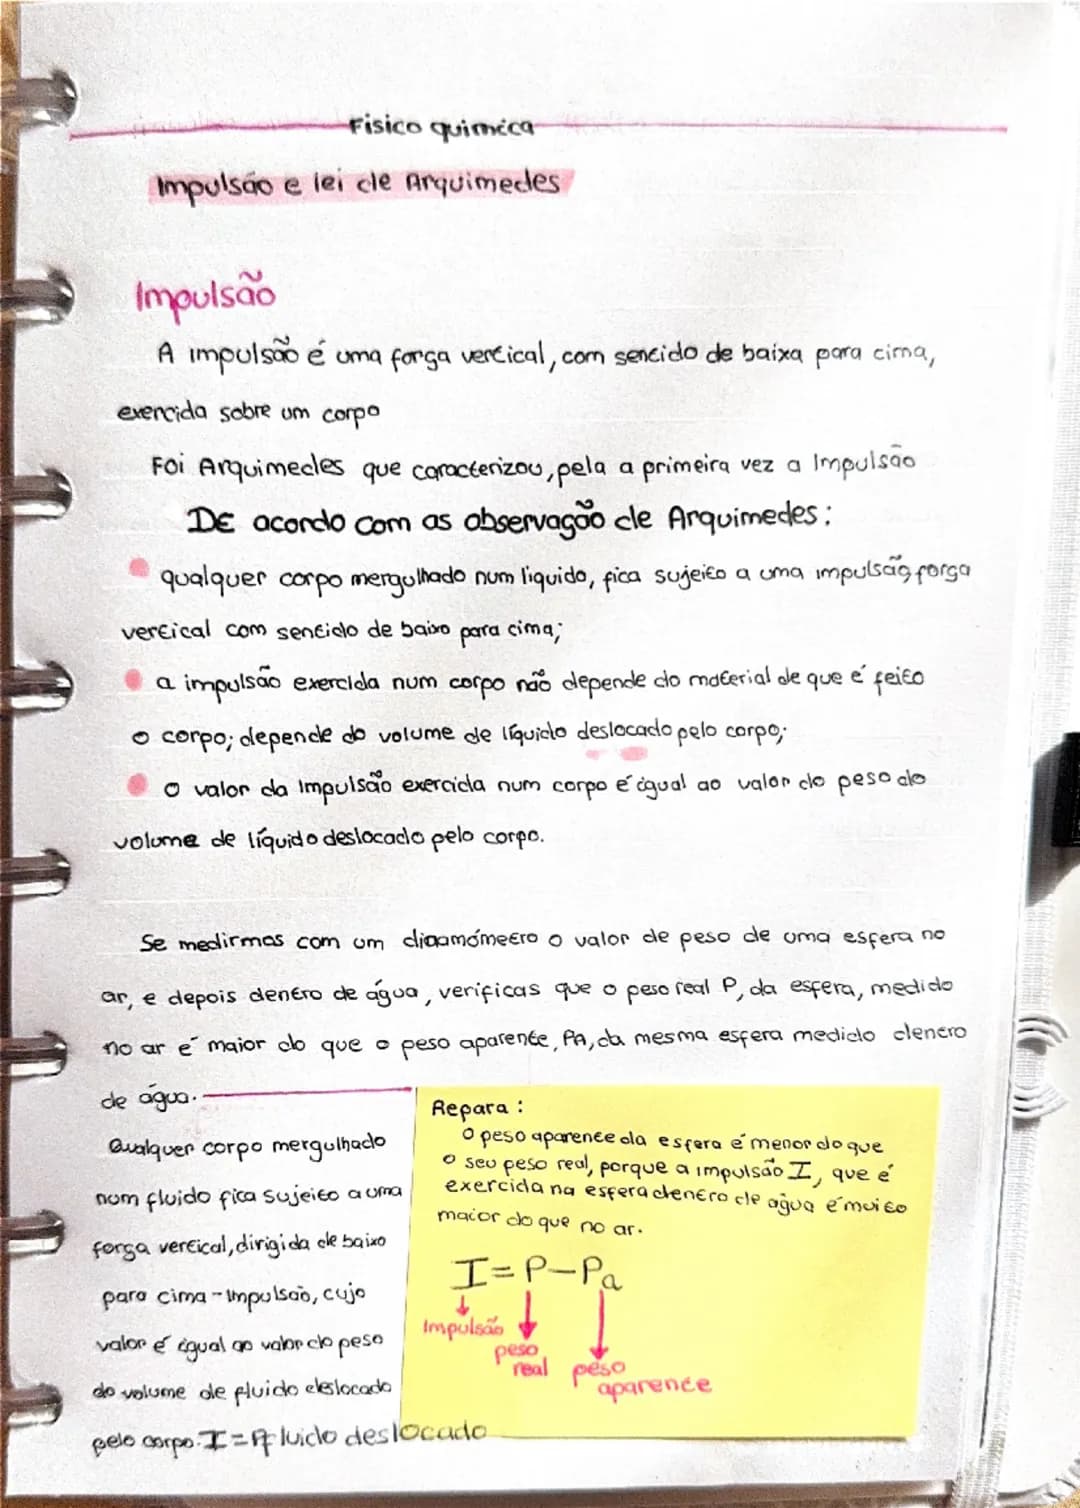 Fisico quimica
Impulsão e lei de Arquimedes
Impulsão
A impulsão é uma força vertical, com sentido de baixa para cima,
exercida sobre um corpo
Foi Arquimedes que caracterizou, pela a primeira vez a Impulsão
DE acordo com as observação de Arquimedes:
qualquer corpo mergulhado num liquido, fica sujeito a uma impulsão, força
vertical com sentido de baixo para cima;
a impulsão exercida num corpo não depende do material de que é feito
o corpo; depende do volume de líquido deslocado pelo corpo;
o valor da Impulsão exercida num corpo é igual ao valor do peso do
volume de líquido deslocado pelo corpo.
Se medirmos com um dinamómetro o valor de peso de uma esfera no
ar, e depois dentro de água, verificas que o peso real P, da esfera, medido
no ar é maior do que o peso aparente, PA, da mesma esfera medido dentro
de água.
Qualquer corpo mergulhado
num fluido fica sujeito a uma
força vertical, dirigida de baixo
para cima - impulsão, cujo
valor é igual ao valor do peso
do volume de fluido deslocado
pelo corpo. I = Pfluido deslocado
Repara:
O peso aparente da esfera é menor do que
o seu peso real, porque a impulsão I, que é
exercida na esfera dentro de água é muito
maior do que no ar.
I = P - Pa
Impulsão
peso
real
peso
aparente